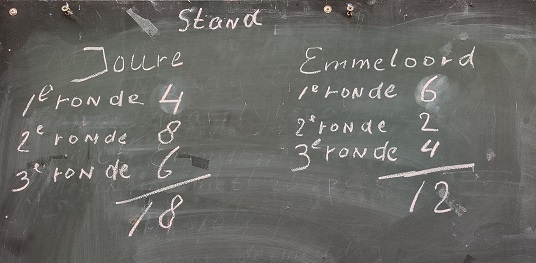 Stand
Joure
1e ronde 4
2e ronde 8
3e ronde 6
18
Emmeloord
1e ronde 6
2e ronde 2
3e ronde 4
12